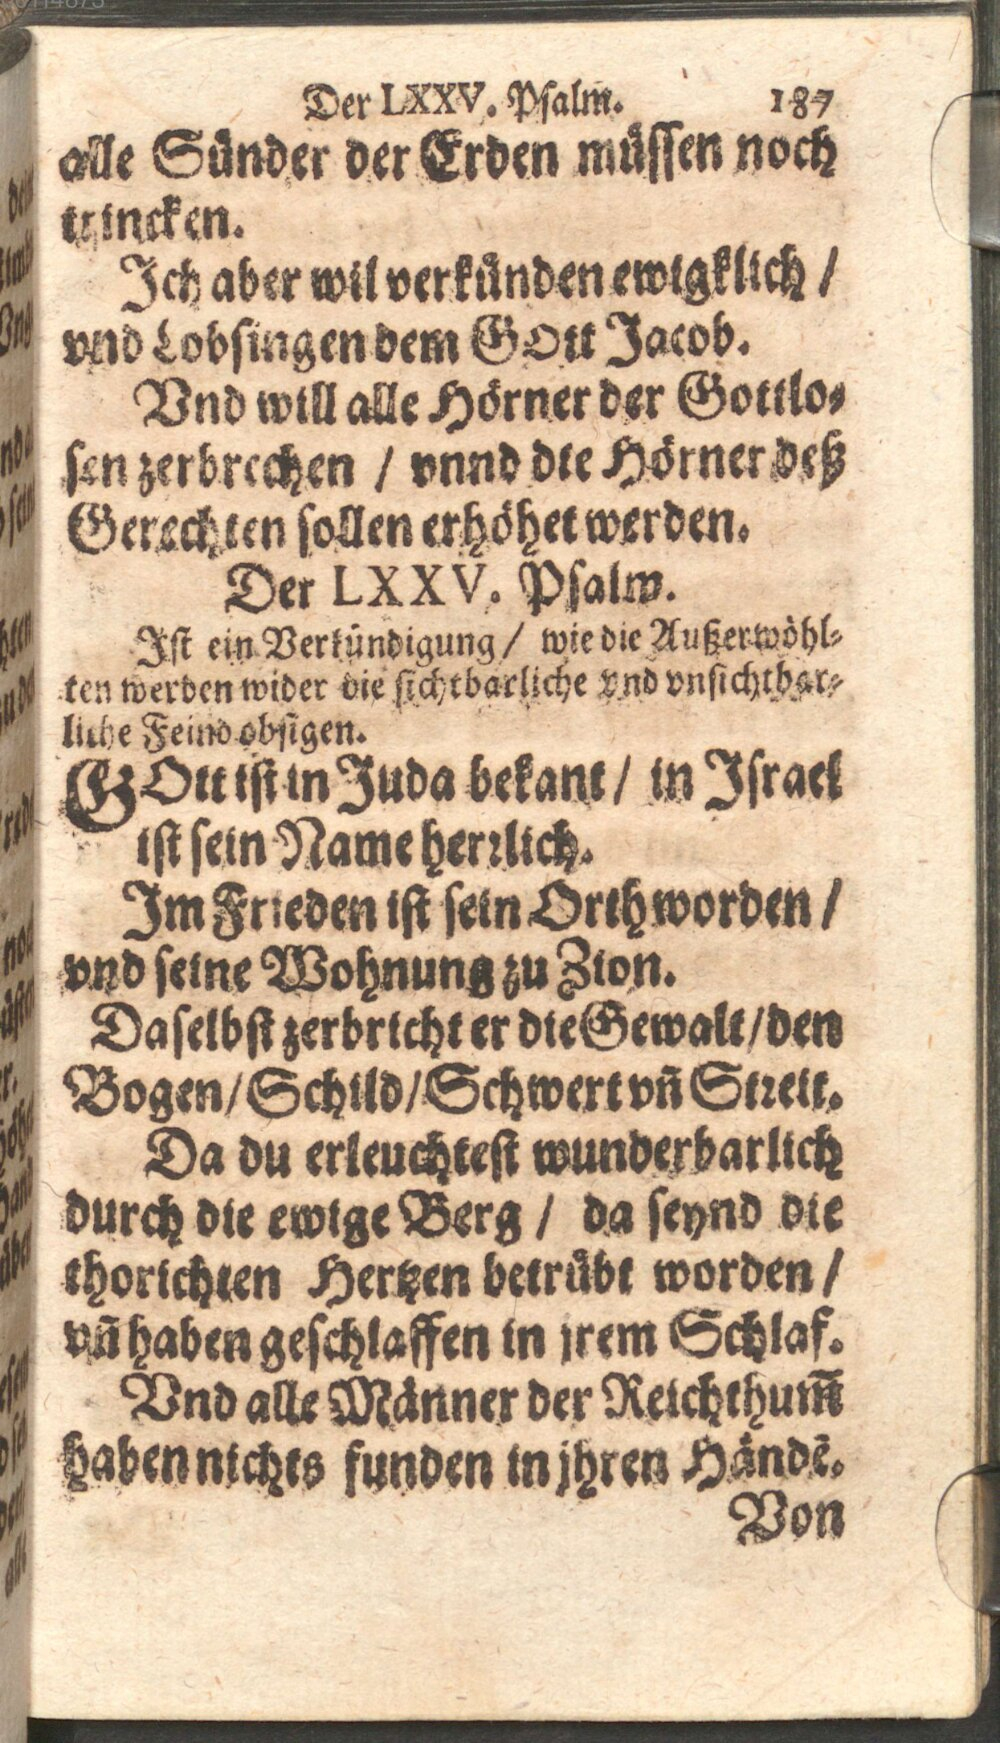 Der LXXV. Psalm. 187
alle Sünder der Erden müssen noch
trincken.
Ich aber wil verkünden ewigklich /
vnd Lobsingen dem GOtt Jacob.
Vnd will alle Hörner der Gottlo⸗
sen zerbrechen / vnnd die Hörner deß
Gerechten sollen erhöhet werden.
Der LXXV. Psalm.
Ist ein Verkündigung / wie die Außerwöhl⸗
ten werden wider die sichtbarliche vnd vnsichtbar⸗
liche Feind obsigen.
GOtt ist in Juda bekant / in Israel
ist sein Name herrlich.
Im Frieden ist sein Orth worden /
vnd seine Wohnung zu Zion.
Daselbst zerbricht er die Gewalt / den
Bogen / Schild / Schwert vñ Streit.
Da du erleuchtest wunderbarlich
durch die ewige Berg / da seynd die
thorichten Hertzen betrübt worden /
vñ haben geschlaffen in jrem Schlaf.
Vnd alle Männer der Reichthum̃
haben nichts funden in jhren Händẽ.
Von